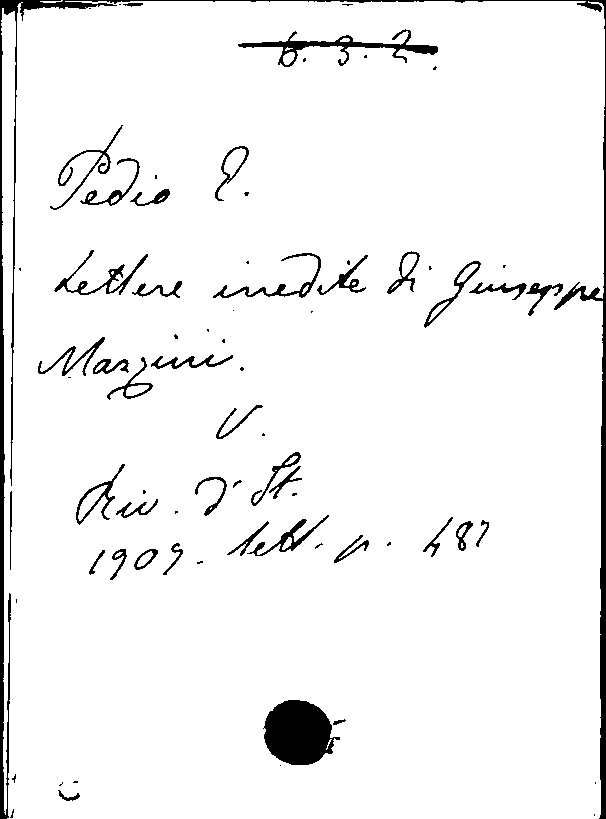 6. 3. 2.
Pedio E.
Lettere inedite di Giuseppe
Mazzini.
V.
Riv. d' It.
1909. Sett. p. 487